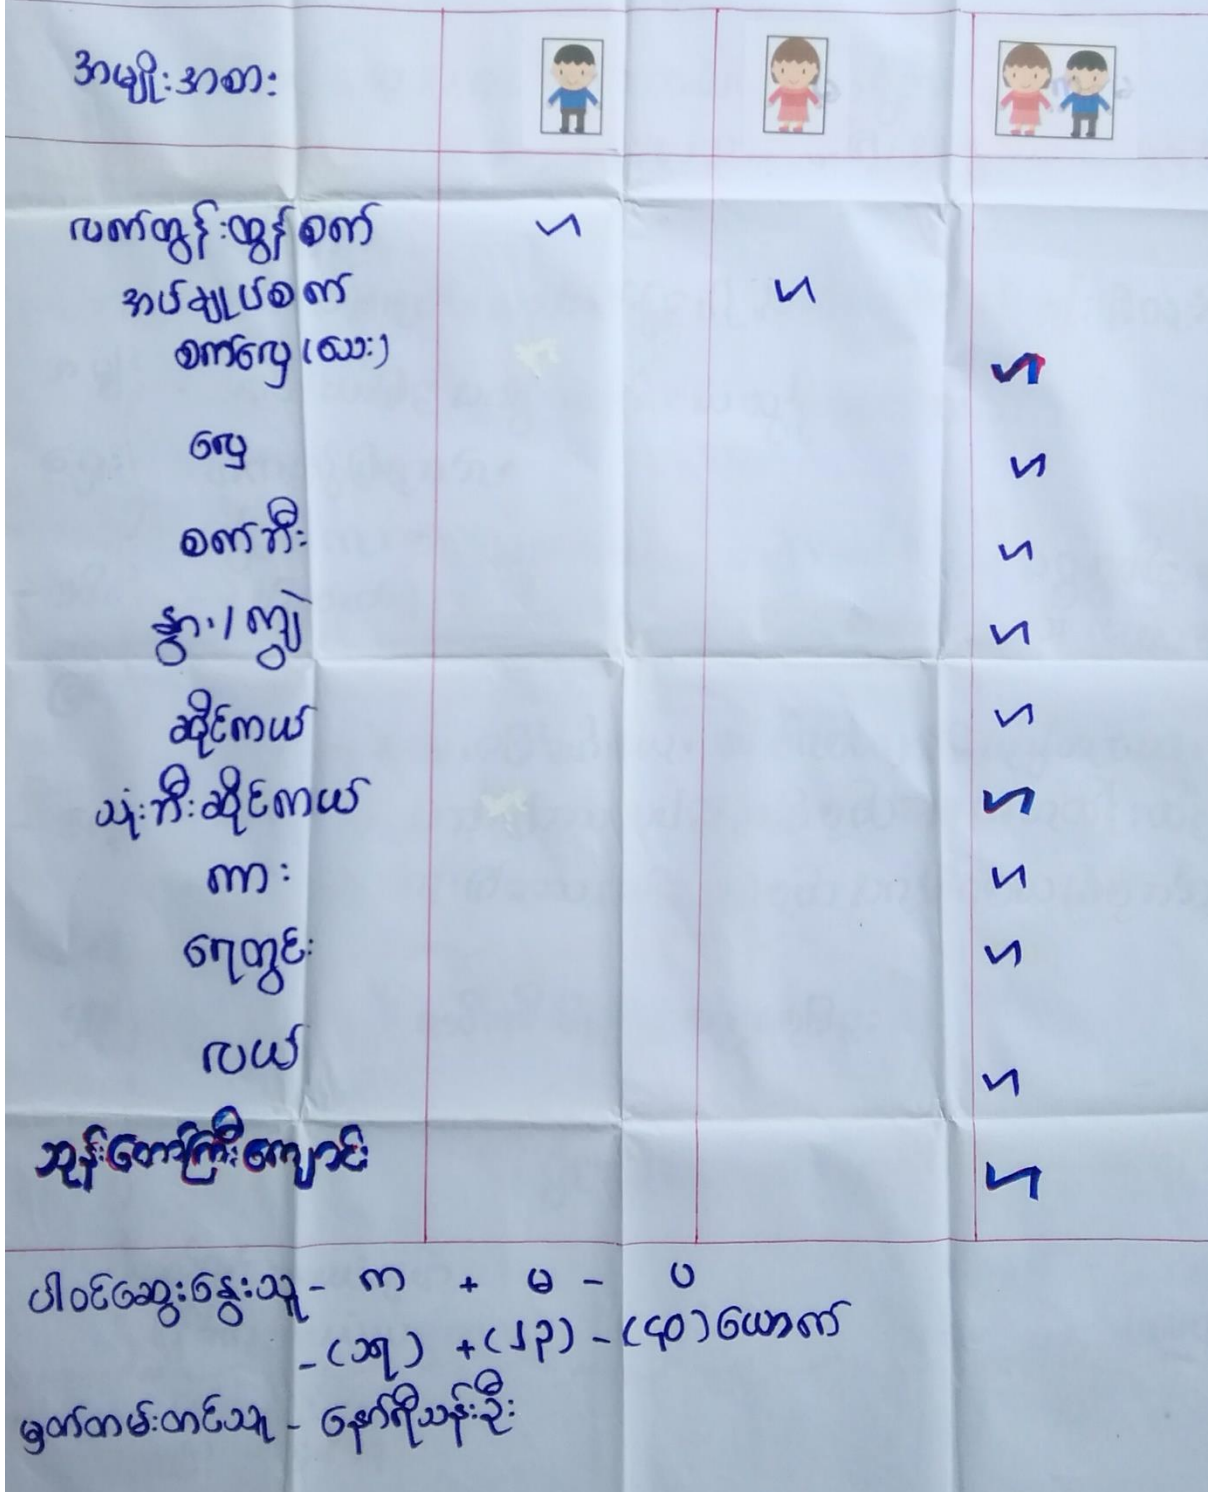 အမျိုးအစား
လက်တွန်းထွန်စက်
အပ်ချုပ်စက်
စက်လှေ (သေး)
လှေ
စက်ဘီး
နွား / ကျွဲ
ဆိုင်ကယ်
သုံးဘီးဆိုင်ကယ်
ကား
ရေတွင်း
လယ်
ဘုန်းတော်ကြီးကျောင်း
ပါဝင်ဆွေးနွေးသူ - က + မ - ပ
- (၁၇) + (၂၃) - (၄၀) ယောက်
မှတ်တမ်းတင်သူ - နော်ရီသန်းဦး